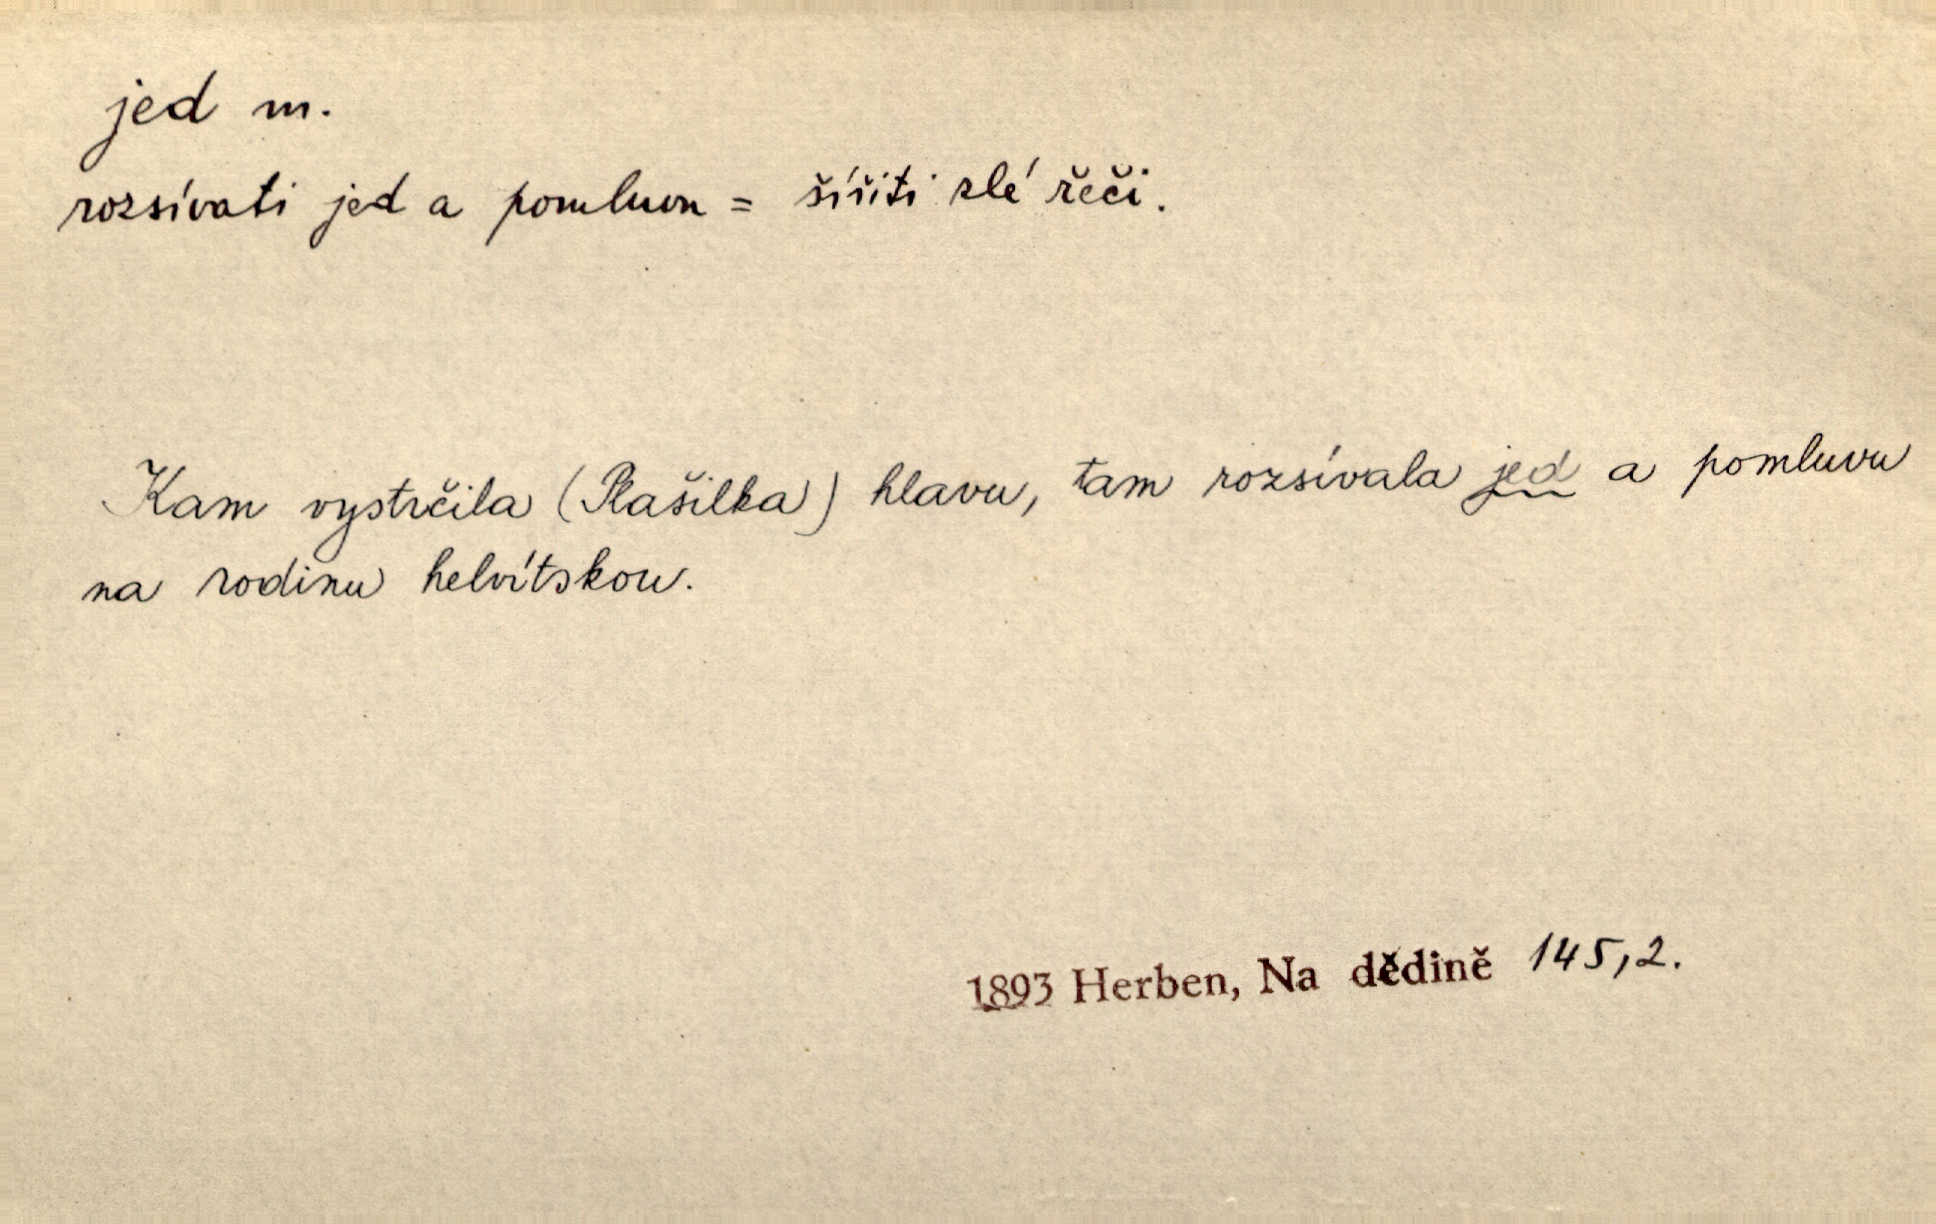 jed m.
rozsívati jed a pomluvu = šířiti zlé řeči.
Kam vystrčila (Plašilka) hlavu, tam rozsívala jed a pomluvu
na rodinu helvítskou.
1893 Herben, Na dědině 145,2.